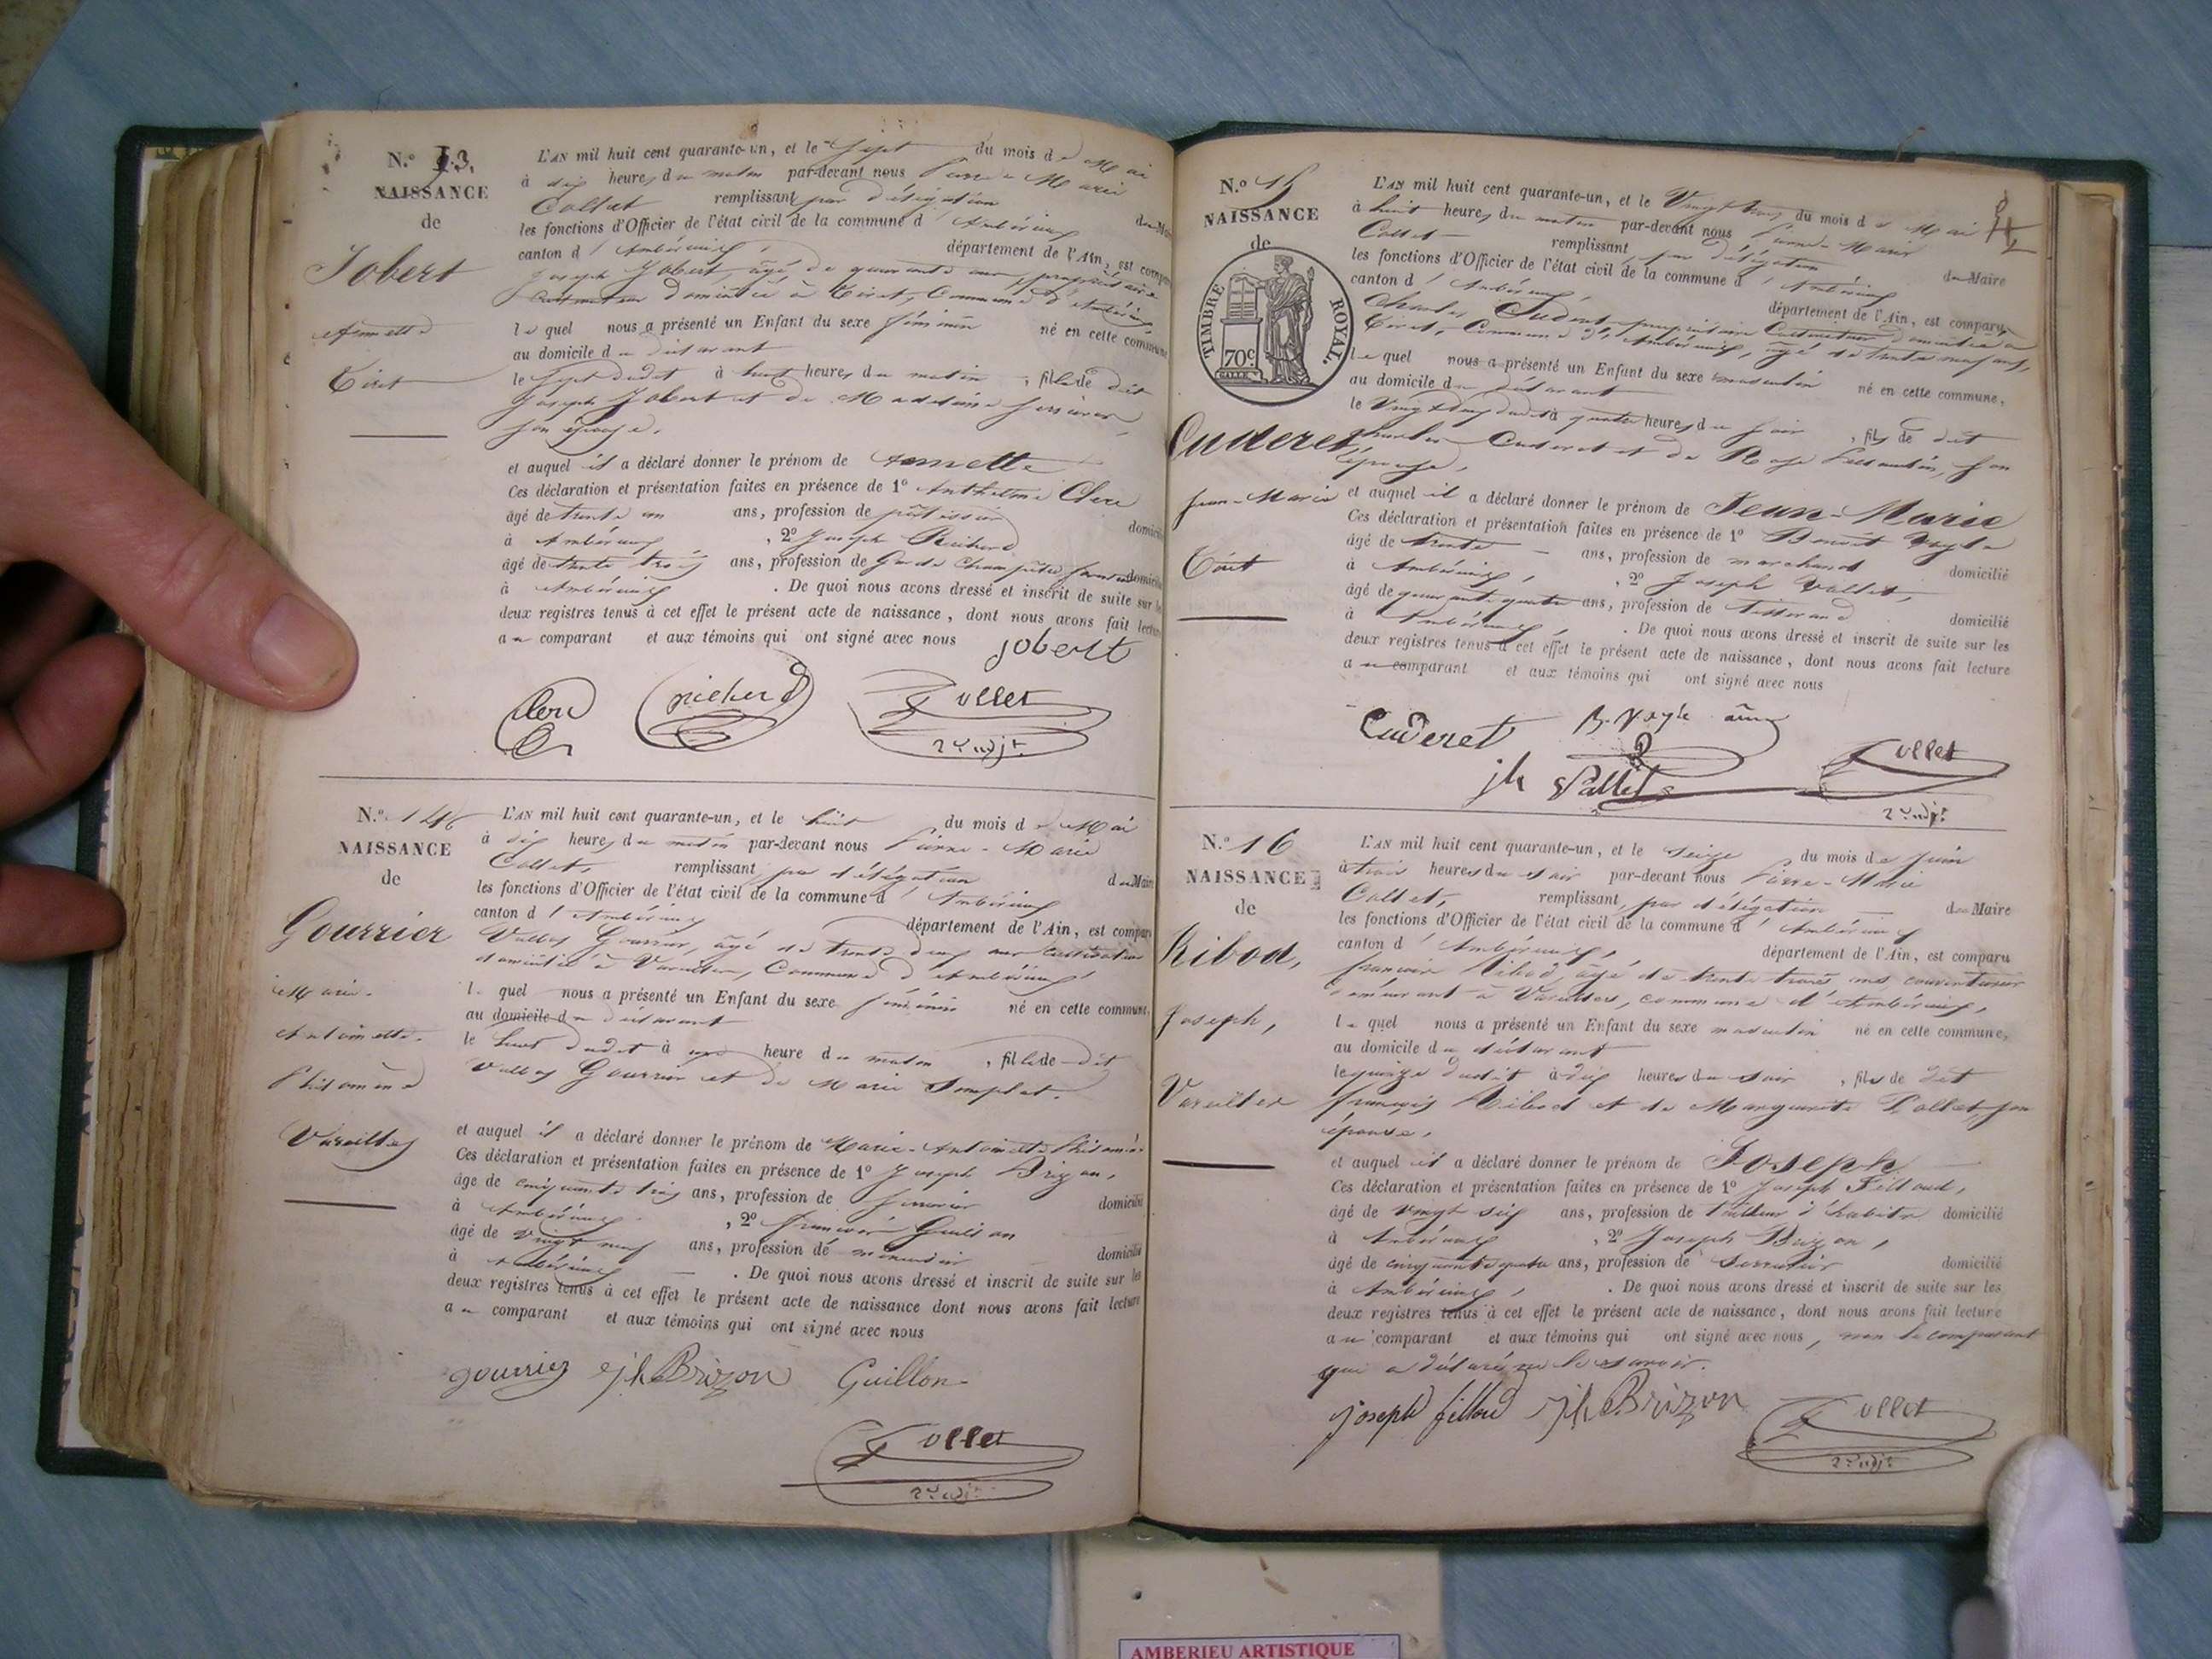 N.º 13.
NAISSANCE
de
Jobert
Annette
Tiret
L'AN mil huit cent quarante-un, et le Sept du mois de Mai
à dix heures du matin par-devant nous Pierre-Marie
Collet remplissant par délégation du Maire
les fonctions d'Officier de l'état civil de la commune d'Ambérieux
canton d'Ambérieux, département de l'Ain, est comparu
Joseph Jobert, âgé de quarante ans, propriétaire
Cultivateur domicilié à Tiret, Commune d'Ambérieux,
lequel nous a présenté un Enfant du sexe féminin né en cette commune
au domicile du déclarant
le Sept dudit à huit heures du matin, fille de dit
Joseph Jobert et de Madelaine
son épouse.
et auquel il a déclaré donner le prénom de Annette
Ces déclaration et présentation faites en présence de 1º Anthelme Clerc
âgé de trente un ans, profession de pâtissier domicilié
à Ambérieux, 2º Joseph Richerd
âgé de trente trois ans, profession de Garde Champêtre domicilié
à Ambérieux. De quoi nous avons dressé et inscrit de suite sur les
deux registres tenus à cet effet le présent acte de naissance, dont nous avons fait lecture
au comparant et aux témoins qui ont signé avec nous
jobert
Clerc richerd Collet
2e adjt
N.º 14
NAISSANCE
de
Gourrier
Marie-
Antoinette-
Philomène
Vareilles
L'AN mil huit cent quarante-un, et le huit du mois de Mai
à dix heures du matin par-devant nous Pierre-Marie
Collet, remplissant par délégation du Maire
les fonctions d'Officier de l'état civil de la commune d'Ambérieux
canton d'Ambérieux département de l'Ain, est comparu
Gourrier, âgé de trente deux ans cultivateur
domicilié à Vareilles, Commune d'Ambérieux,
lequel nous a présenté un Enfant du sexe féminin né en cette commune,
au domicile du déclarant
le huit dudit à une heure du matin, fille de dit
Gourrier et de Marie
et auquel il a déclaré donner le prénom de Marie-Antoinette Philomène
Ces déclaration et présentation faites en présence de 1º Joseph Brizon,
âgé de cinquante trois ans, profession de serrurier domicilié
à Ambérieux, 2º François Guillon
âgé de vingt neuf ans, profession de menuisier domicilié
à Ambérieux. De quoi nous avons dressé et inscrit de suite sur les
deux registres tenus à cet effet le présent acte de naissance dont nous avons fait lecture
au comparant et aux témoins qui ont signé avec nous
gourrier jh Brizon Guillon
Collet
2e adjt
N.º 15
NAISSANCE
de
TIMBRE ROYAL.
70c
Cuderet,
Jean-Marie
Tiret
L'AN mil huit cent quarante-un, et le Vingt trois du mois de Mai
à huit heures du matin par-devant nous Pierre-Marie
Collet remplissant, par délégation du Maire
les fonctions d'Officier de l'état civil de la commune d'Ambérieux
canton d'Ambérieux, département de l'Ain, est comparu
Charles Cuderet, propriétaire Cultivateur domicilié à
Tiret, Commune d'Ambérieux, âgé de trente neuf ans,
lequel nous a présenté un Enfant du sexe masculin né en cette commune,
au domicile du déclarant
le Vingt deux dudit à quatre heures du soir, fils de dit
Charles Cuderet et de Rose son
épouse,
et auquel il a déclaré donner le prénom de Jean-Marie
Ces déclaration et présentation faites en présence de 1º Benoît Vayle
âgé de trente ans, profession de marchand domicilié
à Ambérieux, 2º Joseph Vallet,
âgé de quarante quatre ans, profession de Tisserand domicilié
à Ambérieux, . De quoi nous avons dressé et inscrit de suite sur les
deux registres tenus à cet effet le présent acte de naissance, dont nous avons fait lecture
au comparant et aux témoins qui ont signé avec nous
Cuderet B. Vayle
jh Vallet Collet
2e adjt
N.º 16
NAISSANCE
de
Ribod,
Joseph,
Vareilles
L'AN mil huit cent quarante-un, et le seize du mois de juin
à trois heures du soir par-devant nous Pierre-Marie
Collet, remplissant, par délégation du Maire
les fonctions d'Officier de l'état civil de la commune d'Ambérieux
canton d'Ambérieux, département de l'Ain, est comparu
françois Ribod, âgé de trente trois ans
demeurant à Vareilles, commune d'Ambérieux,
lequel nous a présenté un Enfant du sexe masculin né en cette commune,
au domicile du déclarant
le quinze dudit à dix heures du soir, fils de dit
françois Ribod et de Marguerite son
épouse,
et auquel il a déclaré donner le prénom de Joseph
Ces déclaration et présentation faites en présence de 1º Joseph Filloud,
âgé de vingt six ans, profession de tailleur d'habits domicilié
à Ambérieux, 2º Joseph Brizon,
âgé de cinquante quatre ans, profession de serrurier domicilié
à Ambérieux, . De quoi nous avons dressé et inscrit de suite sur les
deux registres tenus à cet effet le présent acte de naissance, dont nous avons fait lecture
au comparant et aux témoins qui ont signé avec nous, non le comparant
qui a déclaré ne le savoir.
joseph filloud jh Brizon Collet
2e adjt
AMBERIEU ARTISTIQUE